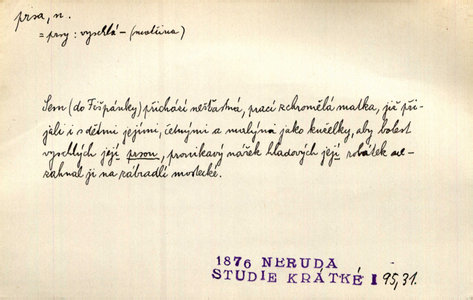 prsa, n.
= prsy: vyschlá – (mateřina)
Sem (do Fišpánky) přichází nešťastná, prací zchromělá matka, již při-
jali i s dětmi jejími, četnými a malými jako kuželky, aby bolest
vyschlých její prsou, pronikavý nářek hladových její robátek ne-
zahnal ji na zábradlí mostecké.
1876 NERUDA
STUDIE KRÁTKÉ I 95,31.